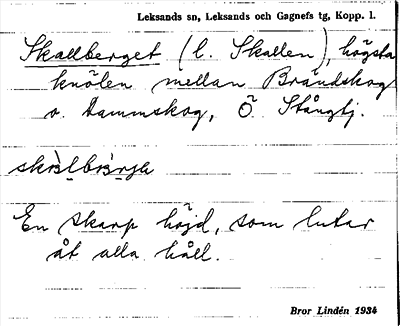 Leksands sn, Leksands och Gagnefs tg, Kopp. l.
Skallberget (l. Skallen), högsta
knölen mellan Brändskog
o. Dammskog, Ö. Stångtj.
En skarp höjd, som lutar
åt alla håll.
Bror Lindén 1934